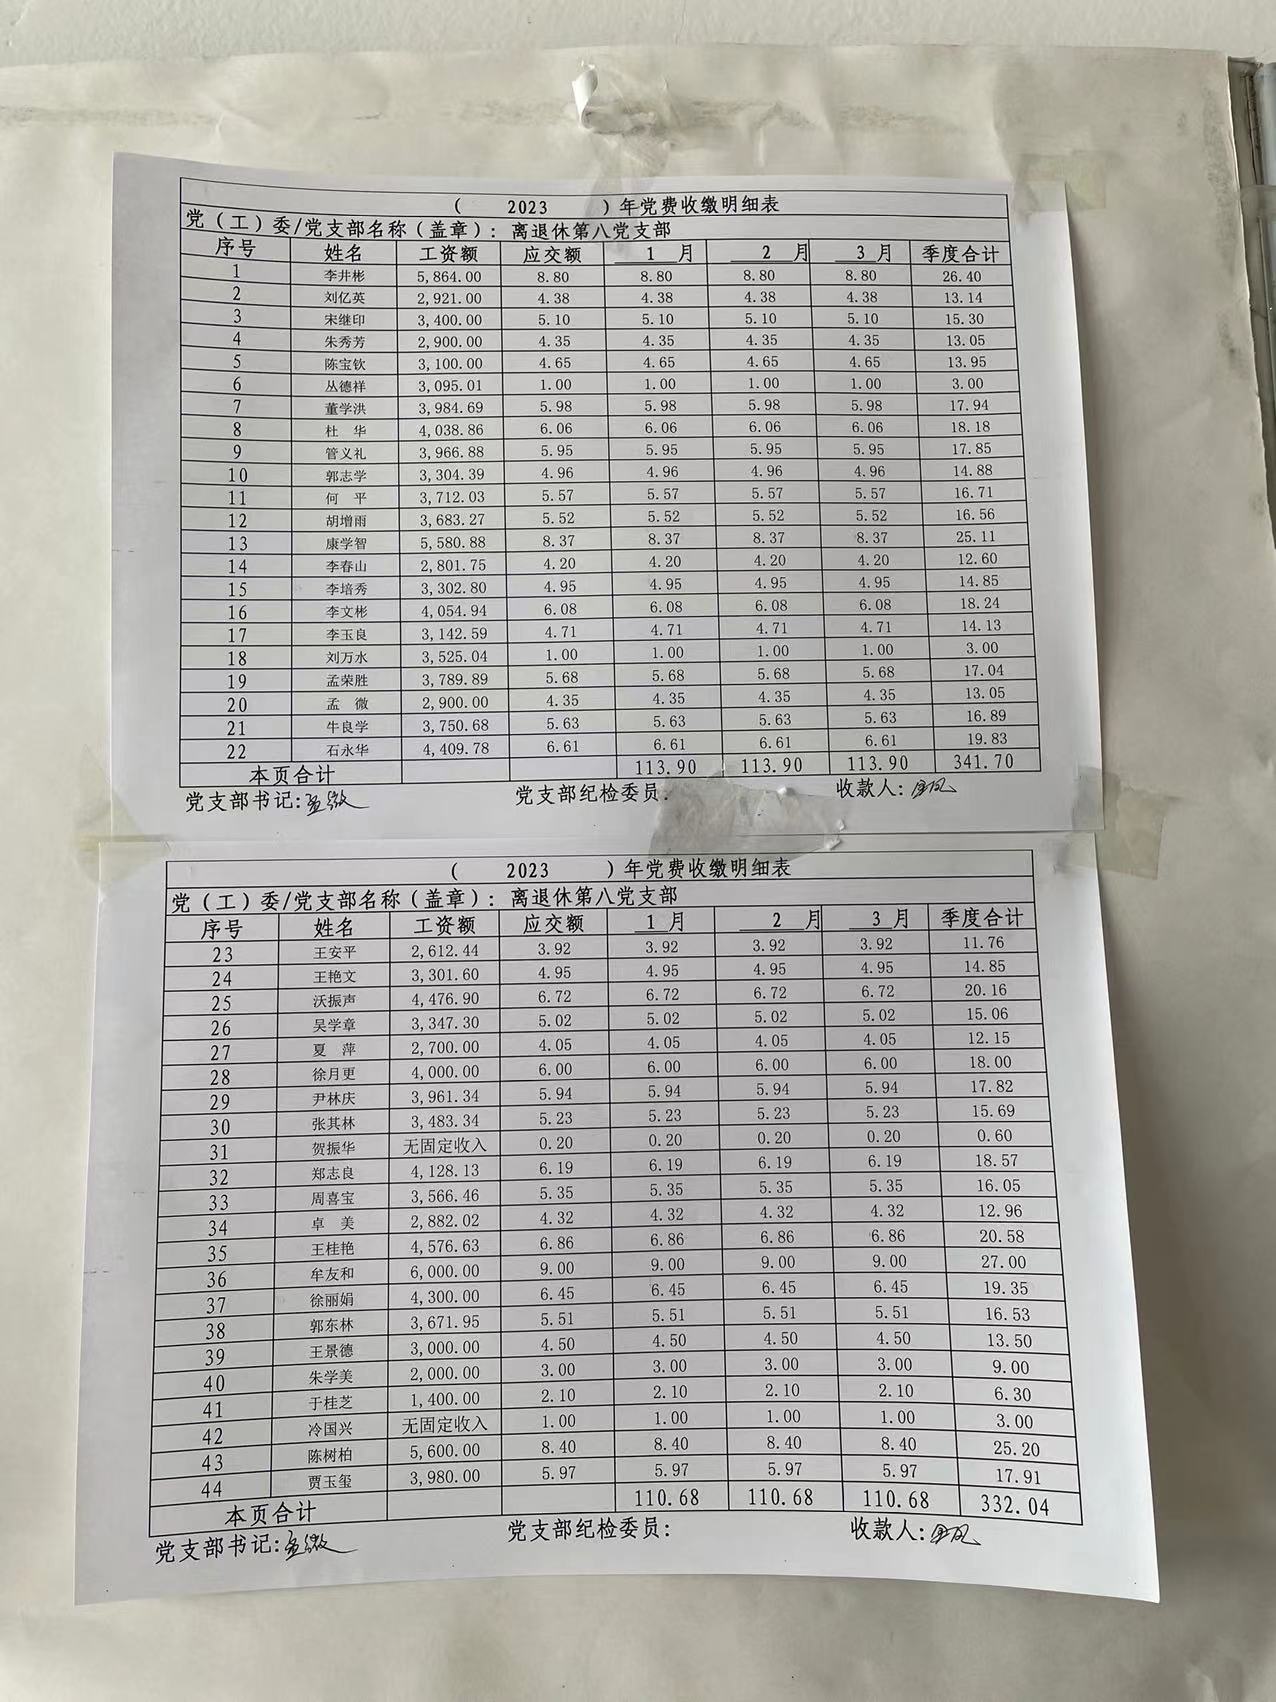 ( 2023 )年党费收缴明细表
党（工）委/党支部名称（盖章）：离退休第八党支部
序号 姓名 工资额 应交额 1 月 2 月 3 月 季度合计
1 李井彬 5,864.00 8.80 8.80 8.80 8.80 26.40
2 刘亿英 2,921.00 4.38 4.38 4.38 4.38 13.14
3 宋继印 3,400.00 5.10 5.10 5.10 5.10 15.30
4 朱秀芳 2,900.00 4.35 4.35 4.35 4.35 13.05
5 陈宝钦 3,100.00 4.65 4.65 4.65 4.65 13.95
6 丛德祥 3,095.01 1.00 1.00 1.00 1.00 3.00
7 董学洪 3,984.69 5.98 5.98 5.98 5.98 17.94
8 杜 华 4,038.86 6.06 6.06 6.06 6.06 18.18
9 管义礼 3,966.88 5.95 5.95 5.95 5.95 17.85
10 郭志学 3,304.39 4.96 4.96 4.96 4.96 14.88
11 何 平 3,712.03 5.57 5.57 5.57 5.57 16.71
12 胡增雨 3,683.27 5.52 5.52 5.52 5.52 16.56
13 康学智 5,580.88 8.37 8.37 8.37 8.37 25.11
14 李春山 2,801.75 4.20 4.20 4.20 4.20 12.60
15 李培秀 3,302.80 4.95 4.95 4.95 4.95 14.85
16 李文彬 4,054.94 6.08 6.08 6.08 6.08 18.24
17 李玉良 3,142.59 4.71 4.71 4.71 4.71 14.13
18 刘万水 3,525.04 1.00 1.00 1.00 1.00 3.00
19 孟荣胜 3,789.89 5.68 5.68 5.68 5.68 17.04
20 孟 微 2,900.00 4.35 4.35 4.35 4.35 13.05
21 牛良学 3,750.68 5.63 5.63 5.63 5.63 16.89
22 石永华 4,409.78 6.61 6.61 6.61 6.61 19.83
本页合计 113.90 113.90 113.90 341.70
党支部书记:孟微 党支部纪检委员: 收款人:
( 2023 )年党费收缴明细表
党（工）委/党支部名称（盖章）：离退休第八党支部
序号 姓名 工资额 应交额 1 月 2 月 3 月 季度合计
23 王安平 2,612.44 3.92 3.92 3.92 3.92 11.76
24 王艳文 3,301.60 4.95 4.95 4.95 4.95 14.85
25 沃振声 4,476.90 6.72 6.72 6.72 6.72 20.16
26 吴学章 3,347.30 5.02 5.02 5.02 5.02 15.06
27 夏 萍 2,700.00 4.05 4.05 4.05 4.05 12.15
28 徐月更 4,000.00 6.00 6.00 6.00 6.00 18.00
29 尹林庆 3,961.34 5.94 5.94 5.94 5.94 17.82
30 张其林 3,483.34 5.23 5.23 5.23 5.23 15.69
31 贺振华 无固定收入 0.20 0.20 0.20 0.20 0.60
32 郑志良 4,128.13 6.19 6.19 6.19 6.19 18.57
33 周喜宝 3,566.46 5.35 5.35 5.35 5.35 16.05
34 卓 美 2,882.02 4.32 4.32 4.32 4.32 12.96
35 王桂艳 4,576.63 6.86 6.86 6.86 6.86 20.58
36 牟友和 6,000.00 9.00 9.00 9.00 9.00 27.00
37 徐丽娟 4,300.00 6.45 6.45 6.45 6.45 19.35
38 郭东林 3,671.95 5.51 5.51 5.51 5.51 16.53
39 王景德 3,000.00 4.50 4.50 4.50 4.50 13.50
40 朱学美 2,000.00 3.00 3.00 3.00 3.00 9.00
41 于桂芝 1,400.00 2.10 2.10 2.10 2.10 6.30
42 冷国兴 无固定收入 1.00 1.00 1.00 1.00 3.00
43 陈树柏 5,600.00 8.40 8.40 8.40 8.40 25.20
44 贾玉玺 3,980.00 5.97 5.97 5.97 5.97 17.91
本页合计 110.68 110.68 110.68 332.04
党支部书记:孟微 党支部纪检委员: 收款人: